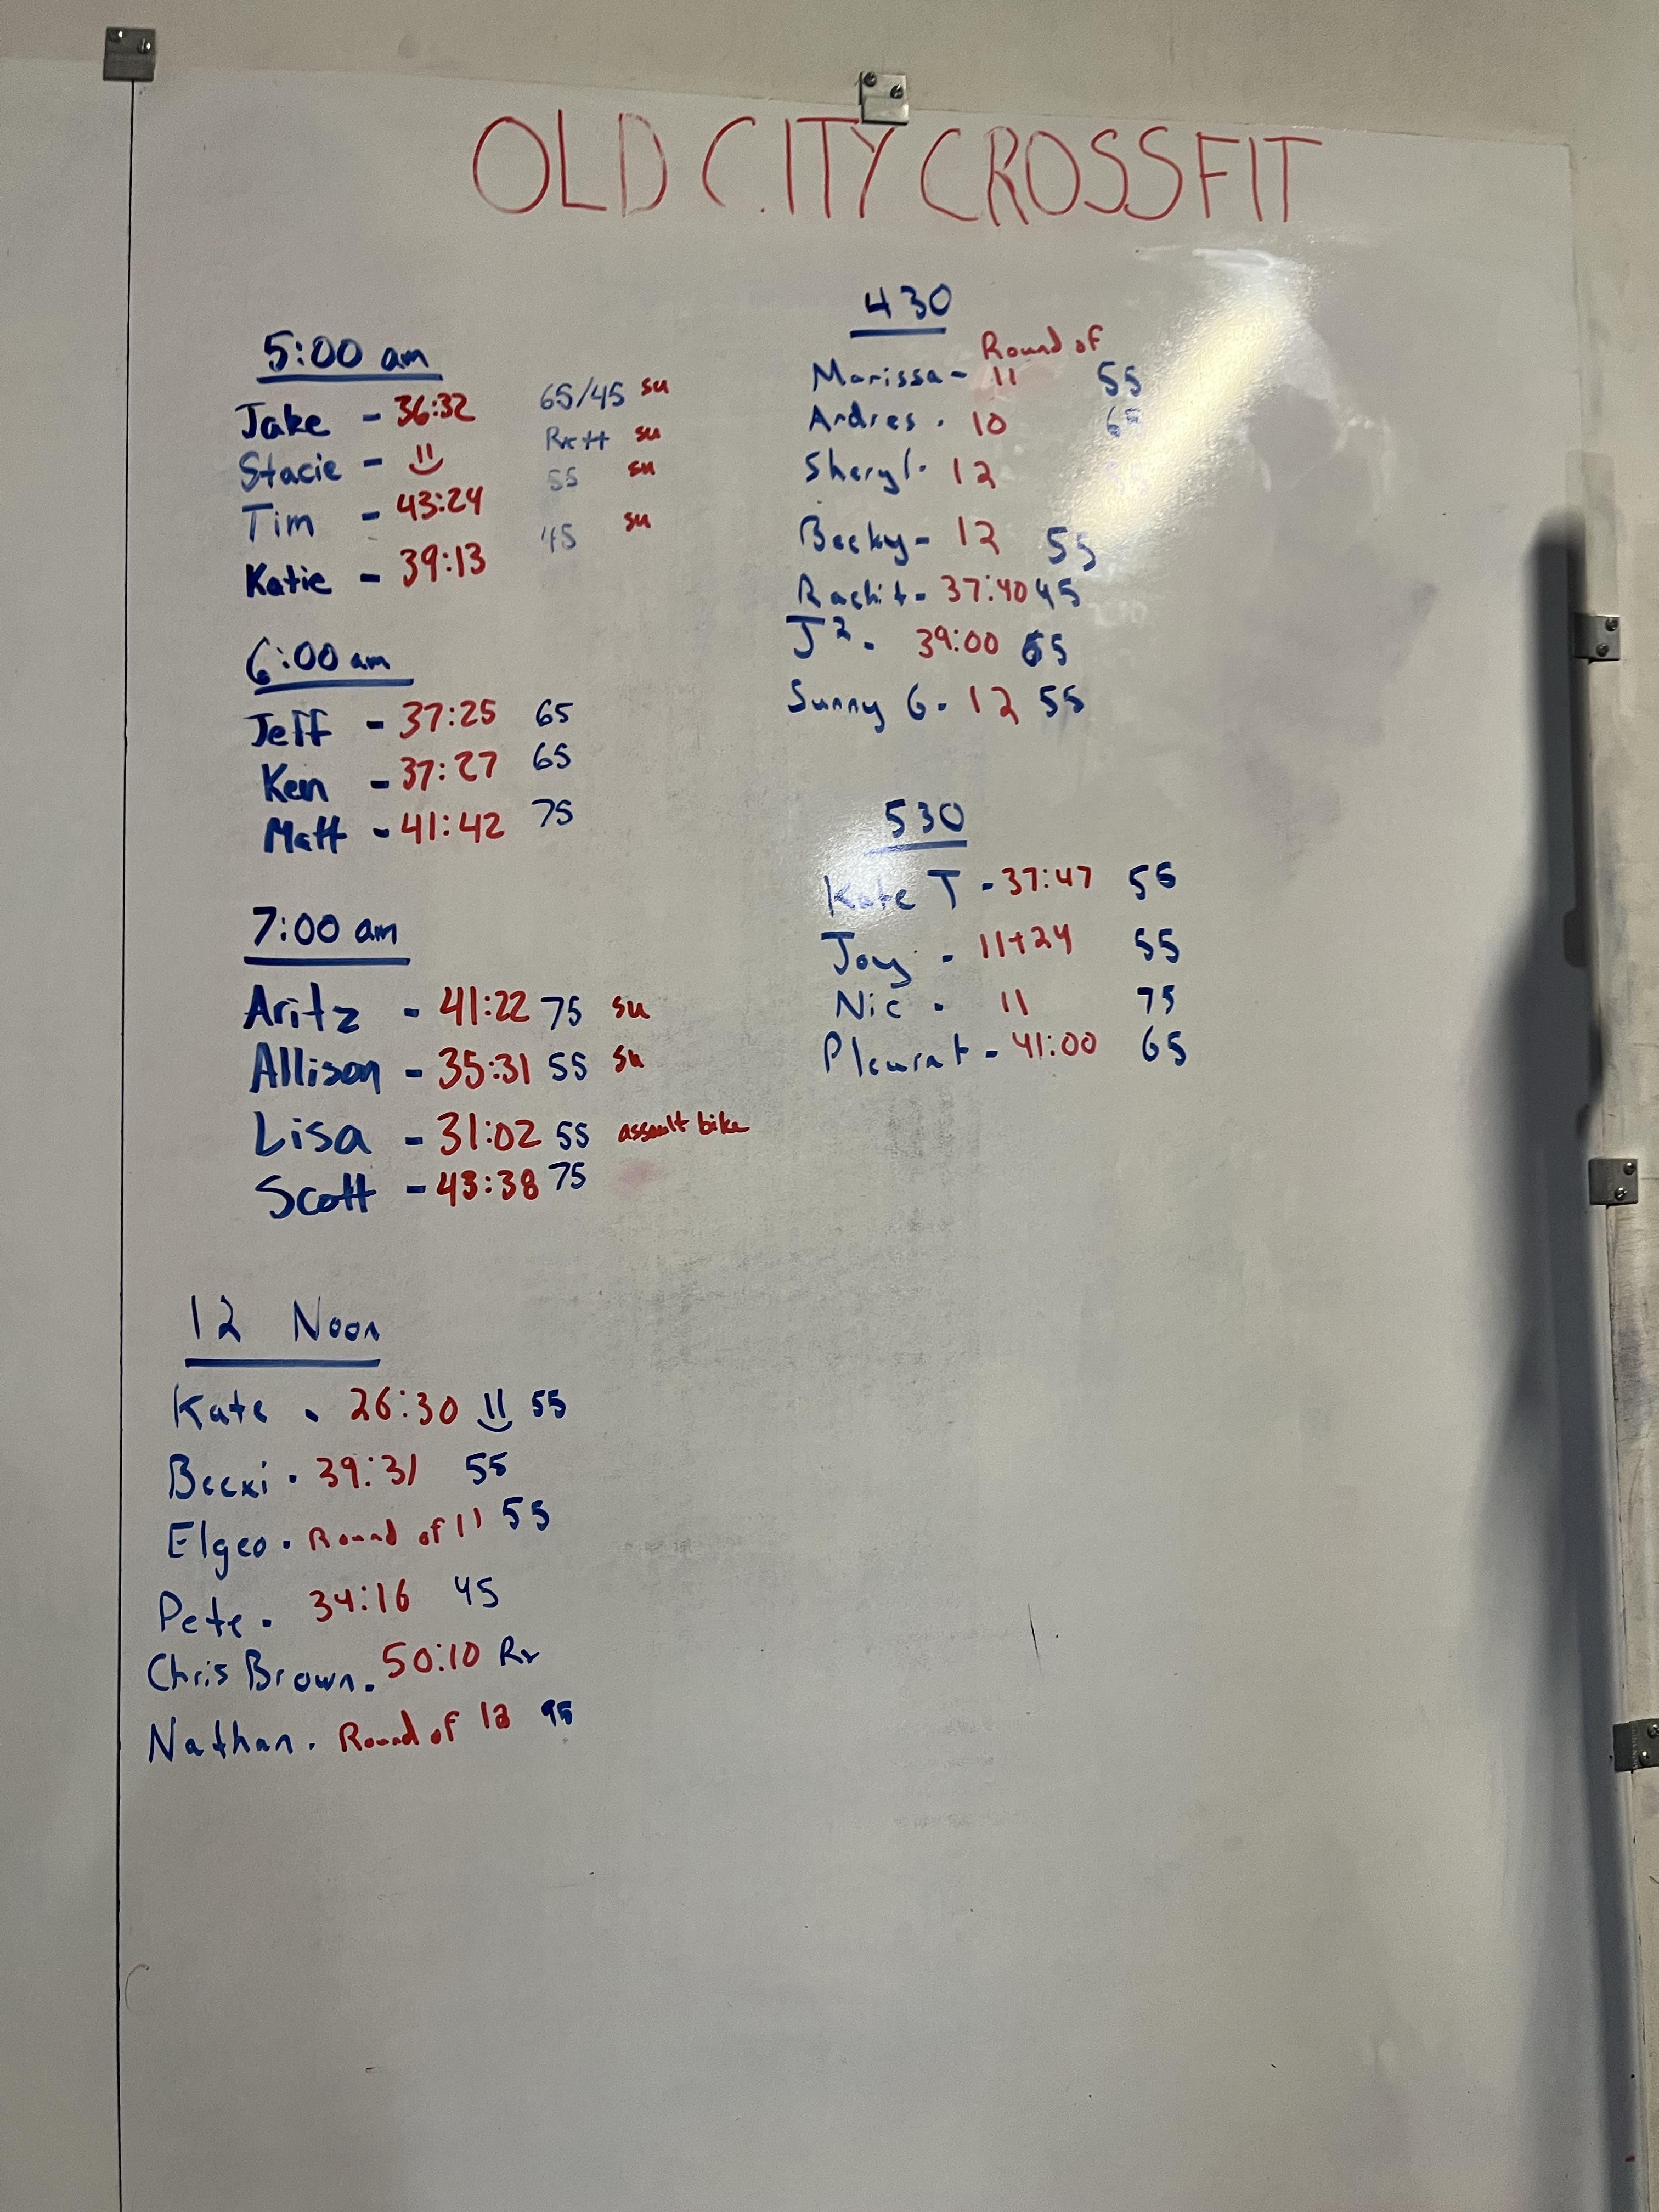 OLD CITY CROSSFIT
5:00 am
Jake - 36:32 65/45 su
Stacie - su
Tim - 43:24 55 su
Katie - 39:13 45 su
6:00 am
Jeff - 37:25 65
Ken - 37:27 65
Matt - 41:42 75
7:00 am
Aritz - 41:22 75 su
Allison - 35:31 55 su
Lisa - 31:02 55 assault bike
Scott - 43:38 75
12 Noon
Kate - 26:30 55
Beexi - 39:31 55
Elgeo - Round of 11 55
Pete - 34:16 45
Chris Brown - 50:10 Rx
Nathan - Round of 95
430
Round of
Marissa - 11 55
Andres - 10 65
Sheryl - 12 55
Becky - 12 55
Rachit - 37:40 45
J² - 39:00 65
Sunny G - 12 55
530
Kate T - 37:47 55
Joy - 11+24 55
Nic - 11 75
Pleurat - 41:00 65